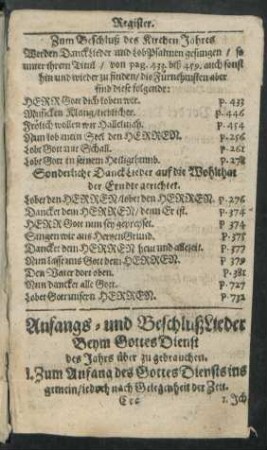 Register.
Zum Beschluß des Kirchen Jahres
Werden Danck Lieder und LobPsalmen gesungen / so
unter ihrem Titul / von pag. 433. biß 459. auch sonst
hin und wieder zu finden / die Fürnehmsten aber
sind diese folgende:
HERR Gott dich loben wir. p. 433
Musicken Klang / lieblicher. p. 446
Frölich wollen wir Halleluiah. p. 454
Nun lob mein Seel den HERREN. p. 256
Lobt Gott mit Schall. p. 261
Lobt Gott in seinem Heiligthumb. p. 278
Sonderliche Danck Lieder auf die Wohlthat
der Erndte gerichtet.
Lobet den HERREN / lobet den HERREN. p. 276
Dancket dem HERREN / denn Er ist. p. 374
HERR Gott nun sey gepreyset. p. 374
Singen wir aus Hertzen Grund. p. 375
Dancket dem HERREN heut und allezeit. p. 377
Nun lasst uns Gott dem HERREN. p. 379
Den Vater dort oben. p. 381
Nun dancket alle Gott. p. 727
Lobet Gott unsern HERREN. p. 732
Anfangs- und Beschluß Lieder
Beym Gottes Dienst
des Jahrs über zu gebrauchen.
I. Zum Anfang des Gottes Diensts ins
gemein / jedoch nach Gelegenheit der Zeit.
Ccc 1. Ich